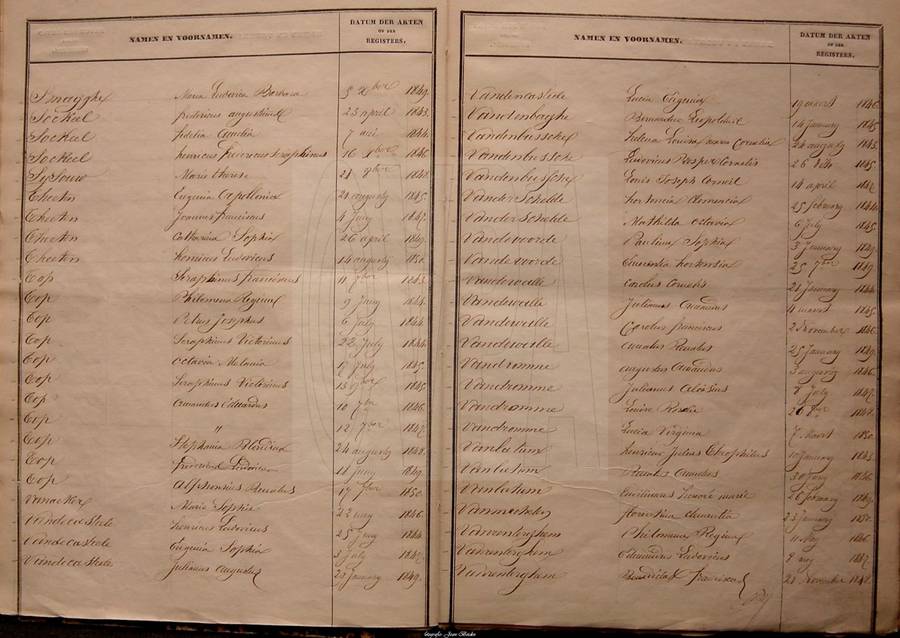 NAMEN EN VOORNAMEN. DATUM DER AKTEN
OF DER
REGISTERS.
Smagghe Maria Ludovica Barbara 9 xber 1849
Sockeel fredericus augustinus 23 april 1843
Sockeel fidelia Amelia 7 1844
Sockeel henricus fredericus seraphinus 16 1846
Sysouw Marie therese 21 9ber 1848
Theeten Eugenia Apollonia 21 augusty 1845
Theeten Joannes franciscus 4 Juny 1847
Theeten Catharina Sophia 26 april 1849
Theeten Henricus Ludovicus 14 augusty 1850
Top Seraphinus franciscus 11 1843
Top Philomena Regina 9 Juny 1844
Top Petrus Josephus 6 July 1844
Top Seraphinus Victorinus 22 July 1844
Top Octavia Melania 17 July 1845
Top Seraphinus Victorinus 13 1845
Top Amandus Eduardus 10 7ber 1846
Top " 12 7ber 1847
Top Stephania 24 augusty 1848
Top Ludovicus 11 Juny 1849
Top Alphonsius Amatus 17 7ber 1850
Vanacker Marie Sophie 22 may 1846
Vandecasteele henricus Ludovicus 25 Juny 1844
Vandecasteele Eugenia Sophia 3 July 1847
Vandecasteele Julianus Augustus 20 January 1849
NAMEN EN VOORNAMEN. DATUM DER AKTEN
OF DER
REGISTERS.
Vandencasteele Lucia Eugenia 19 maart 1846
Bernardus Leopoldus 14 January 1845
Vandenbussche Helena Louisa maria Cornelia 24 augusty 1843
Vandenbussche Ludovicus Prosper Cornelis 26 1845
Vandenbussche Louis Joseph Corneil 14 april 1847
Vanderschelde hortencia Clemencia 25 february 1844
Vanderschelde Mathilda octavia 6 July 1845
Vandevoorde Paulina Sophia 3 January 1849
Vandevoorde hortensia 25 7ber 1849
Vandewalle Carolus Cornelis 21 January 1844
Vandewalle Julianus Amandus 4 maart 1845
Vandewalle Carolus franciscus 2 November 1846
Vandewalle Amatus 25 January 1849
Vandromme augustus Amandus 3 augusty 1846
Vandromme Julianus Aloisius 7 July 1847
Vandromme Louise Rosalie 26 1848
Vandromme Lucia Virginia 7 Maart 1850
Vanletum henricus Julius Theophilus 10 January 1843
Vanletum Amandus 30 Juny 1846
Vanletum marie 26 february 1849
florentina Amelia 23 January 1850
Vanrenterghem Philomena Regina 11 May 1846
Vanrenterghem Amandus Ludovicus 9 1847
Vanrenterghem Benedicta Francisca 21 November 1848